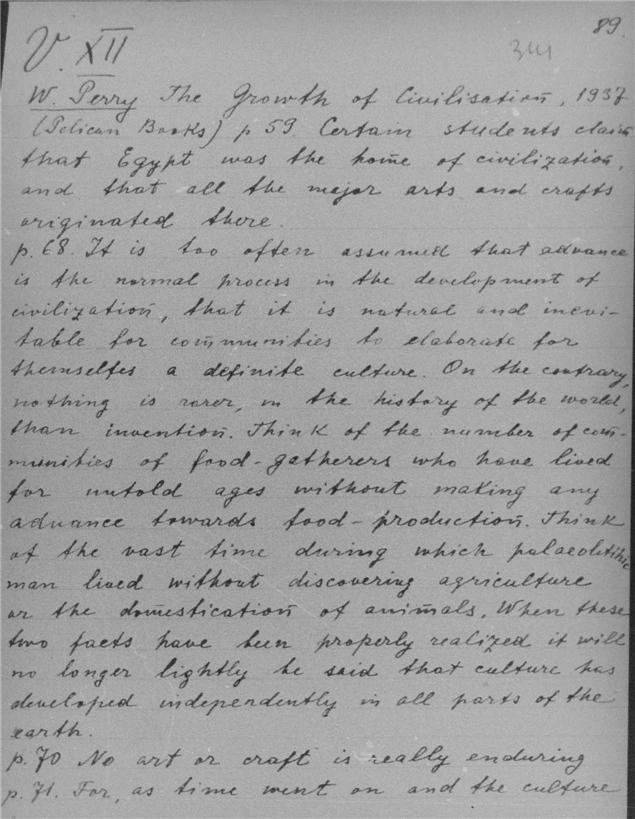 89.
V. XII
344
W. Perry The Growth of Civilisation, 1937
(Pelican Books) p 59. Certain students claim
that Egypt was the home of civilization,
and that all the major arts and crafts
originated there.
p. 68. It is too often assumed that advance
is the normal process in the development of
civilization, that it is natural and inevi-
table for communities to elaborate for
themselfes a definite culture. On the contrary,
nothing is rarer, in the history of the world,
than invention. Think of the number of com-
munities of food-gatherers who have lived
for untold ages without making any
advance towards food-production. Think
of the vast time during which palaeolithic
man lived without discovering agriculture
or the domestication of animals. When these
two facts have been properly realized it will
no longer lightly be said that culture has
developed independently in all parts of the
earth.
p. 70 No art or craft is really enduring
p. 71. For, as time went on and the culture